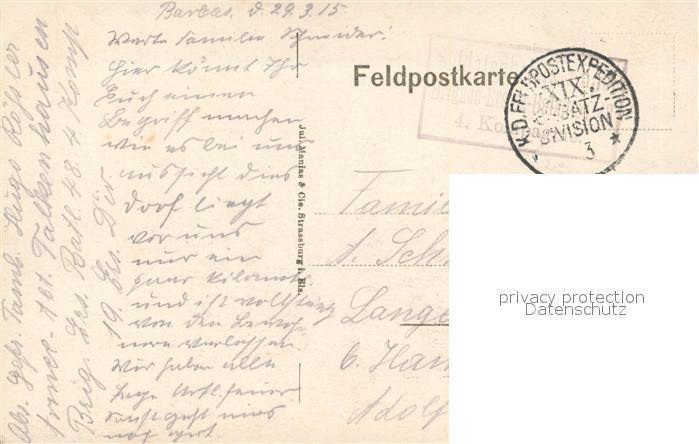 Barbas. d. 29.3.15
Werte Familie Schneider!
Hier könnt Ihr
Euch einen
Begriff machen
wie es bei uns
aussieht dies
Dorf liegt
vor uns
nur ein
paar Kilomet.
und ist vollständ.
von den Bewoh-
nern verlassen
Wir haben alle
Tage Artl. feuer
sonst geht mirs
noch gut
Abs. Gefr. Tamb. Hugo Rößler
Armee-Abt. Falkenhausen
Brig. Ers. Batl. 48. 4 Komp
19. Ers. Div
Jul. Manias & Cie. Strassburg i. Els.
Feldpostkarte
4. Kompag
K.D. FELDPOSTEXPEDITION
XIX.
ERSATZ
DIVISION
3
Famil
A. Sch
Lange
b. Ham
Adolf
privacy protection
Datenschutz